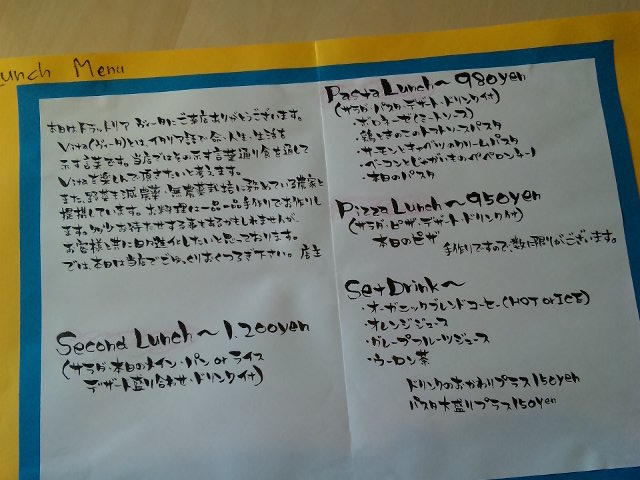 Lunch Menu
本日はトラットリア ヴィータにご来店ありがとうございます。
Vita(ヴィータ)とは、イタリア語で命・人生・生活を
示す言葉です。当店ではその示す言葉通り食を通して
Vitaを楽しんで頂きたいと考えます。
また、野菜も減農薬・無農薬栽培に務めている農家と
提携しています。お料理は一品一品手作りでお作りし
ます。少々お待たせする事もあるかもしれませんが、
お客様と共に日々進化したいと思っております。
では、本日は当店でごゆっくりおくつろぎ下さい。 店主
Second Lunch〜 1.200yen
(サラダ・本日のメイン・パン or ライス
デザート盛り合わせ・ドリンク付)
Pasta Lunch〜 980yen
(サラダ・パスタ・デザート・ドリンク付)
・ボロネーゼ(ミートソース)
・鶏ときのこのトマトソースパスタ
・サーモンとキャベツのクリームパスタ
・ベーコンとじゃがいものペペロンチーノ
・本日のパスタ
Pizza Lunch〜 950yen
(サラダ・ピザ・デザート・ドリンク付)
本日のピザ
手作りですので、数に限りがございます。
Set Drink〜
・オーガニックブレンドコーヒー(HOT or ICE)
・オレンジジュース
・グレープフルーツジュース
・ウーロン茶
ドリンクのおかわりプラス150yen
パスタ大盛りプラス150yen